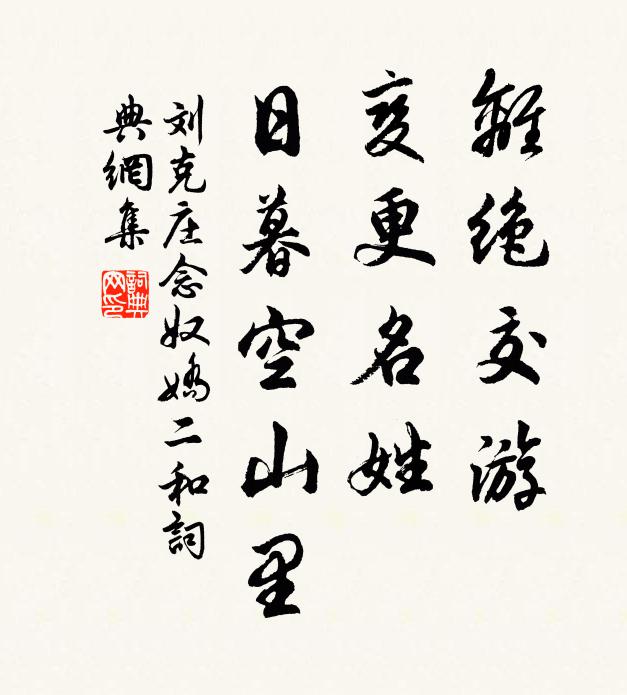 離绝交游
变更名姓
日暮空山里
刘克庄念奴嬌二和詞
典網集
詞典网印